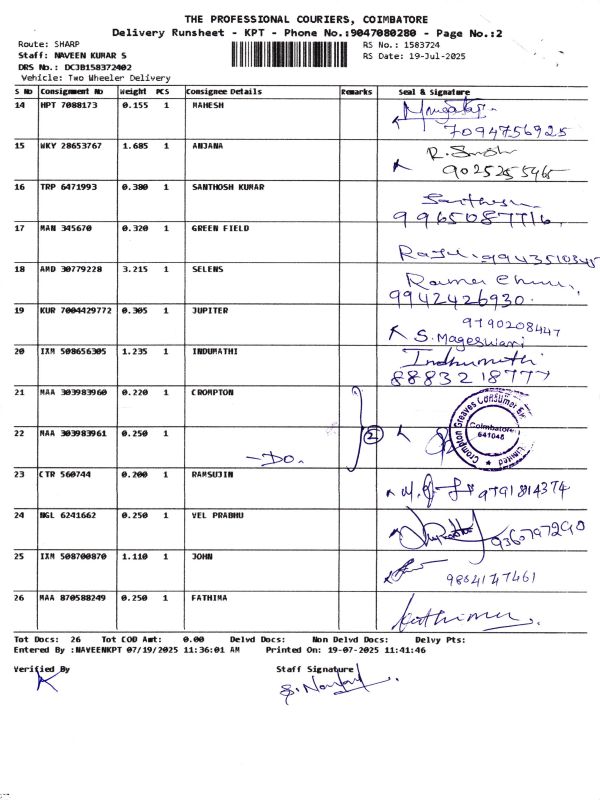 THE PROFESSIONAL COURIERS, COIMBATORE
Delivery Runsheet - KPT - Phone No.:9047080280 - Page No.:2
Route: SHARP RS No.: 1583724
Staff: NAVEEN KUMAR S RS Date: 19-Jul-2025
DRS No.: DCJB158372402
Vehicle: Two Wheeler Delivery
S No Consignment No Weight PCS Consignee Details Remarks Seal & Signature
14 HPT 7088173 0.155 1 MAHESH
7094756925
15 WKY 28653767 1.685 1 ANJANA
9025255465
16 TRP 6471993 0.380 1 SANTHOSH KUMAR Santhosh
9965087716
17 MAN 345670 0.320 1 GREEN FIELD
Raju. 9943510345
18 AMD 30779228 3.215 1 SELENS
9942426930.
19 KUR 7004429772 0.305 1 JUPITER 9790208447
S. Mageswari
20 IXM 508656305 1.235 1 INDUMATHI Indhumathi
8883218777
21 MAA 303983960 0.220 1 CROMPTON
22 MAA 303983961 0.250 1 2
-DO.
Crompton Greaves Consumer
Coimbatore
641045
Limited
23 CTR 560744 0.200 1 RAMSUJIN 9791814374
24 NGL 6241662 0.250 1 VEL PRABHU 9360797290
25 IXM 508700870 1.110 1 JOHN
9864147461
26 MAA 870588249 0.250 1 FATHIMA Fathima
Tot Docs: 26 Tot COD Amt: 0.00 Delvd Docs: Non Delvd Docs: Delvy Pts:
Entered By :NAVEENKPT 07/19/2025 11:36:01 AM Printed On: 19-07-2025 11:41:46
Verified By Staff Signature